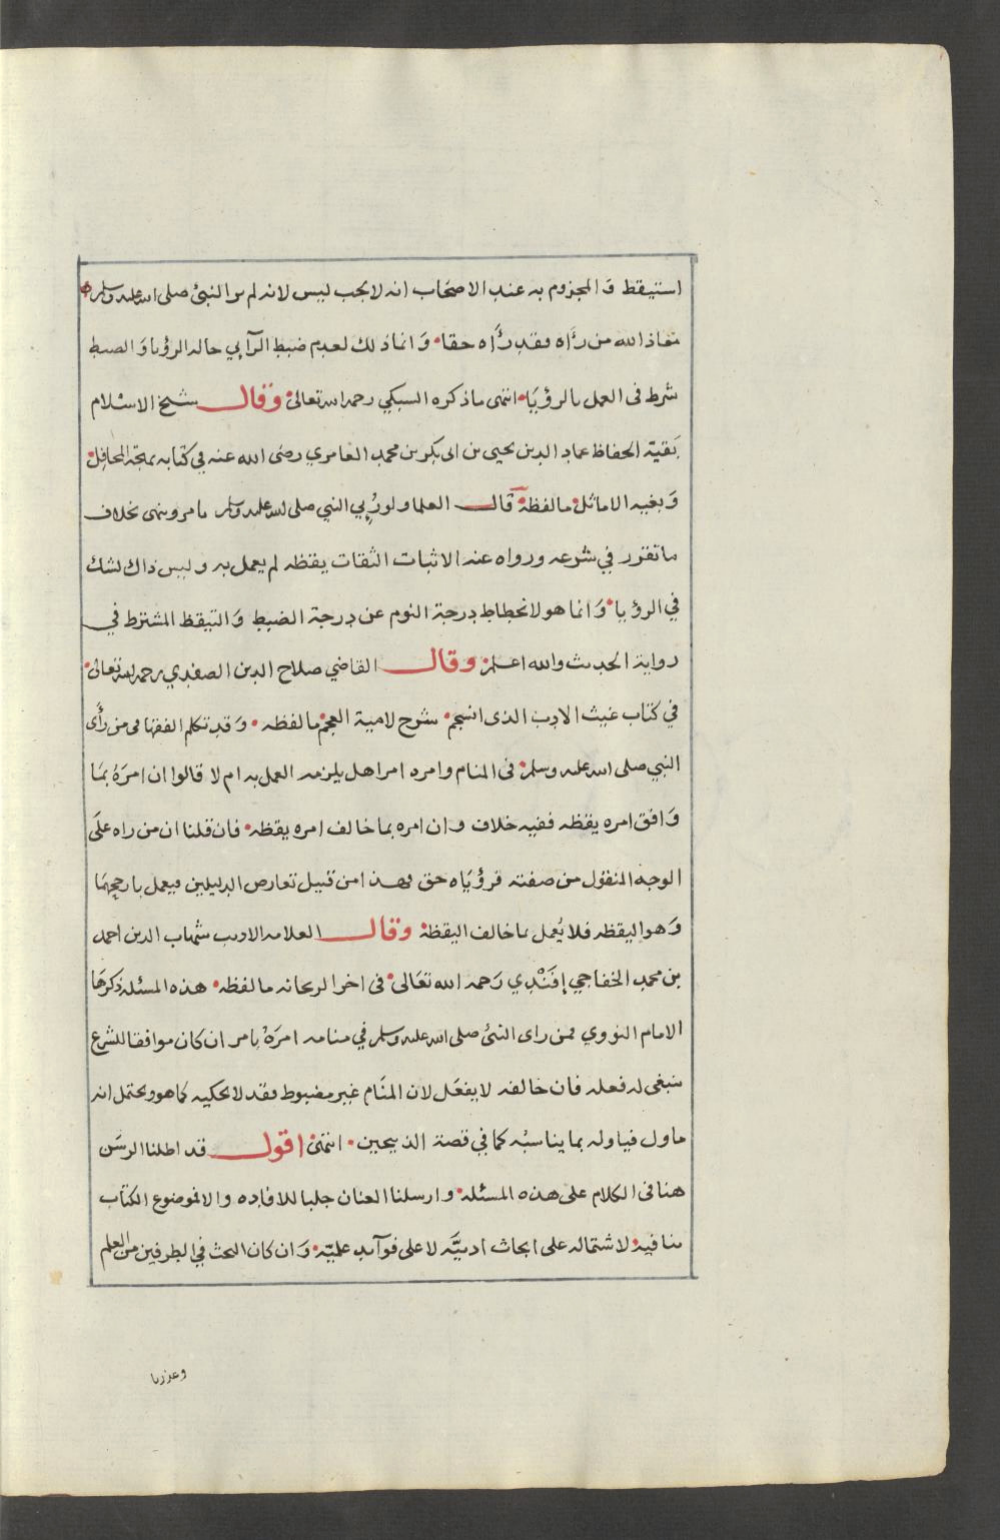 استيقظ والمجزوم به عند الاصحاب انه لا يجب ليس لانه لم ير النبي صلى الله عليه وسلم
معاذ الله من رأه فقد رأه حقا وانما ذلك لعدم ضبط الرآيي حاله الرؤيا والضبط
شرط في العمل بالرؤيا انتهى ما ذكره السبكي رحمه الله تعالى وقال شيخ الاسلام
بقية الحفاظ عماد الدين يحيى بن ابى بكر بن محمد العامري رضى الله عنه في كتابه بهجة المحافل
وبغيه الاماثل ما لفظه قال العلما ولو رُيي النبي صلى الله عليه وسلم يامر وينهى بخلاف
ما تقرر في شرعه ورواه عنه الاثبات الثقات يقظه لم يعمل به وليس ذاك لشك
في الرؤيا وانما هو لانحطاط درجة النوم عن درجة الضبط والتيقظ المشترط في
رواية الحديث والله اعلم وقال القاضي صلاح الدين الصفدي رحمه الله تعالى
في كتاب غيث الادب الذى انسجم شرح لامية العجم ما لفظه وقد تكلم الفقها فى من رأى
النبي صلى الله عليه وسلم فى المنام وامره امرا هل يلزمه العمل به ام لا قالوا ان امره بما
وافق امره يقظه ففيه خلاف وان امره بما خالف امره يقظه فان قلنا ان من راه على
الوجه المنقول من صفته فرؤياه حق فهذا من قبيل تعارض الدليلين فيعمل بارجحهما
وهو اليقظه فلا يُعمل بما خالف اليقظة وقال العلامه الاديب شهاب الدين احمد
بن محمد الخفاجي إفَنْدِي رَحمه الله تعَالى في اخر الريحانه ما لفظه هذه المسئله ذكرها
الامام النووي فمن راى النبي صلى الله عليه وسلم في منامه امرَهُ بامر ان كان موافقا للشرع
ينبغى له فعله فان خالفه لا يفعل لان المنام غير مضبوط فقد لا يحكيه كما هو ويحتمل انه
ماول فياوله بما يناسبُه كما في قصة الذبيحين انتهى اقول قد اطلنا الرسَن
هنا فى الكلام على هذه المسئله وارسلنا العنان جلبا للافاده والا فموضوع الكتاب
ينافيه لاشتماله على ابحاث ادبيَّه لا على فوآيد علميّه وَان كان البحث في الطرفين من العلم